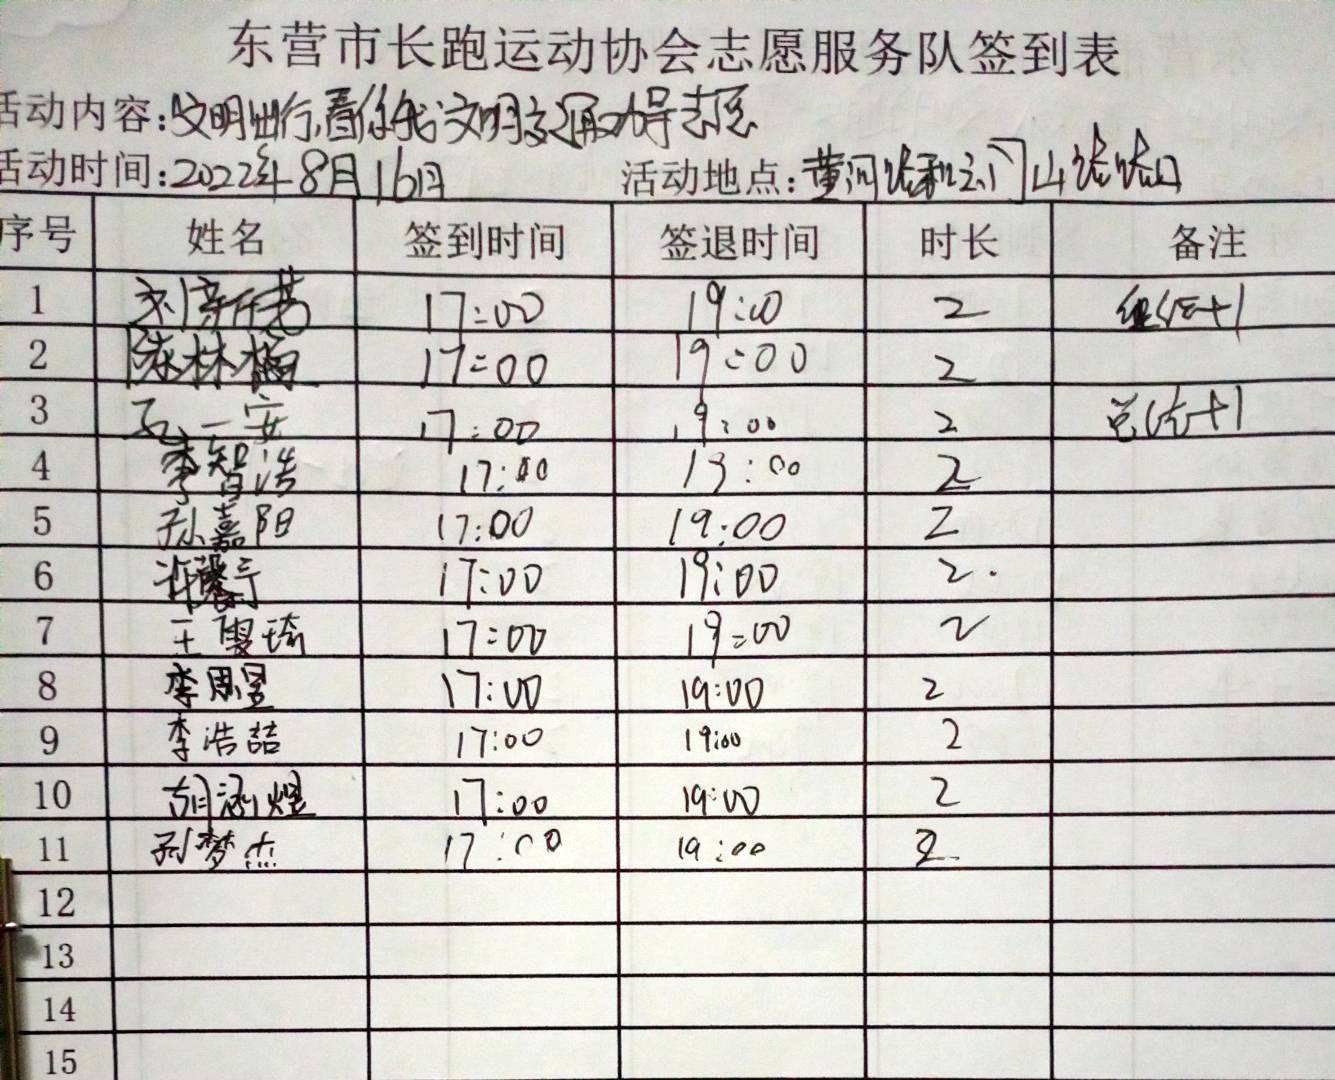 东营市长跑运动协会志愿服务队签到表
活动内容:文明出行,看你我文明交通劝导志愿
活动时间:2022年8月16日 活动地点:黄河路和云门山路路口
序号 姓名 签到时间 签退时间 时长 备注
1 17:00 19:00 2 +1
2 陈林梅 17:00 19:00 2
3 石一安 17:00 19:00 2 +1
4 李智浩 17:00 19:00 2
5 孙嘉阳 17:00 19:00 2
6 许馨 17:00 19:00 2
7 王 琦 17:00 19:00 2
8 李思昱 17:00 19:00 2
9 李浩喆 17:00 19:00 2
10 胡涵煜 17:00 19:00 2
11 孙梦杰 17:00 19:00 2
12
13
14
15